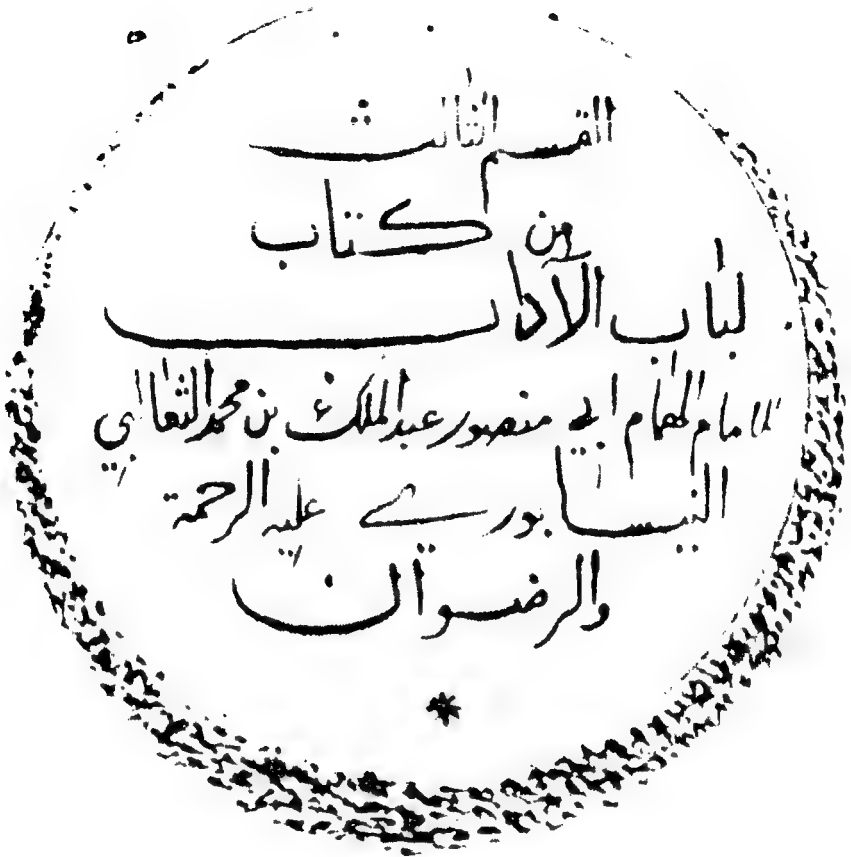 القسم الثالث
من كتاب
لباب الآداب
للامام الهمام ابي منصور عبد الملك بن محمد الثعالبي
النيسابوري عليه الرحمة
والرضوان